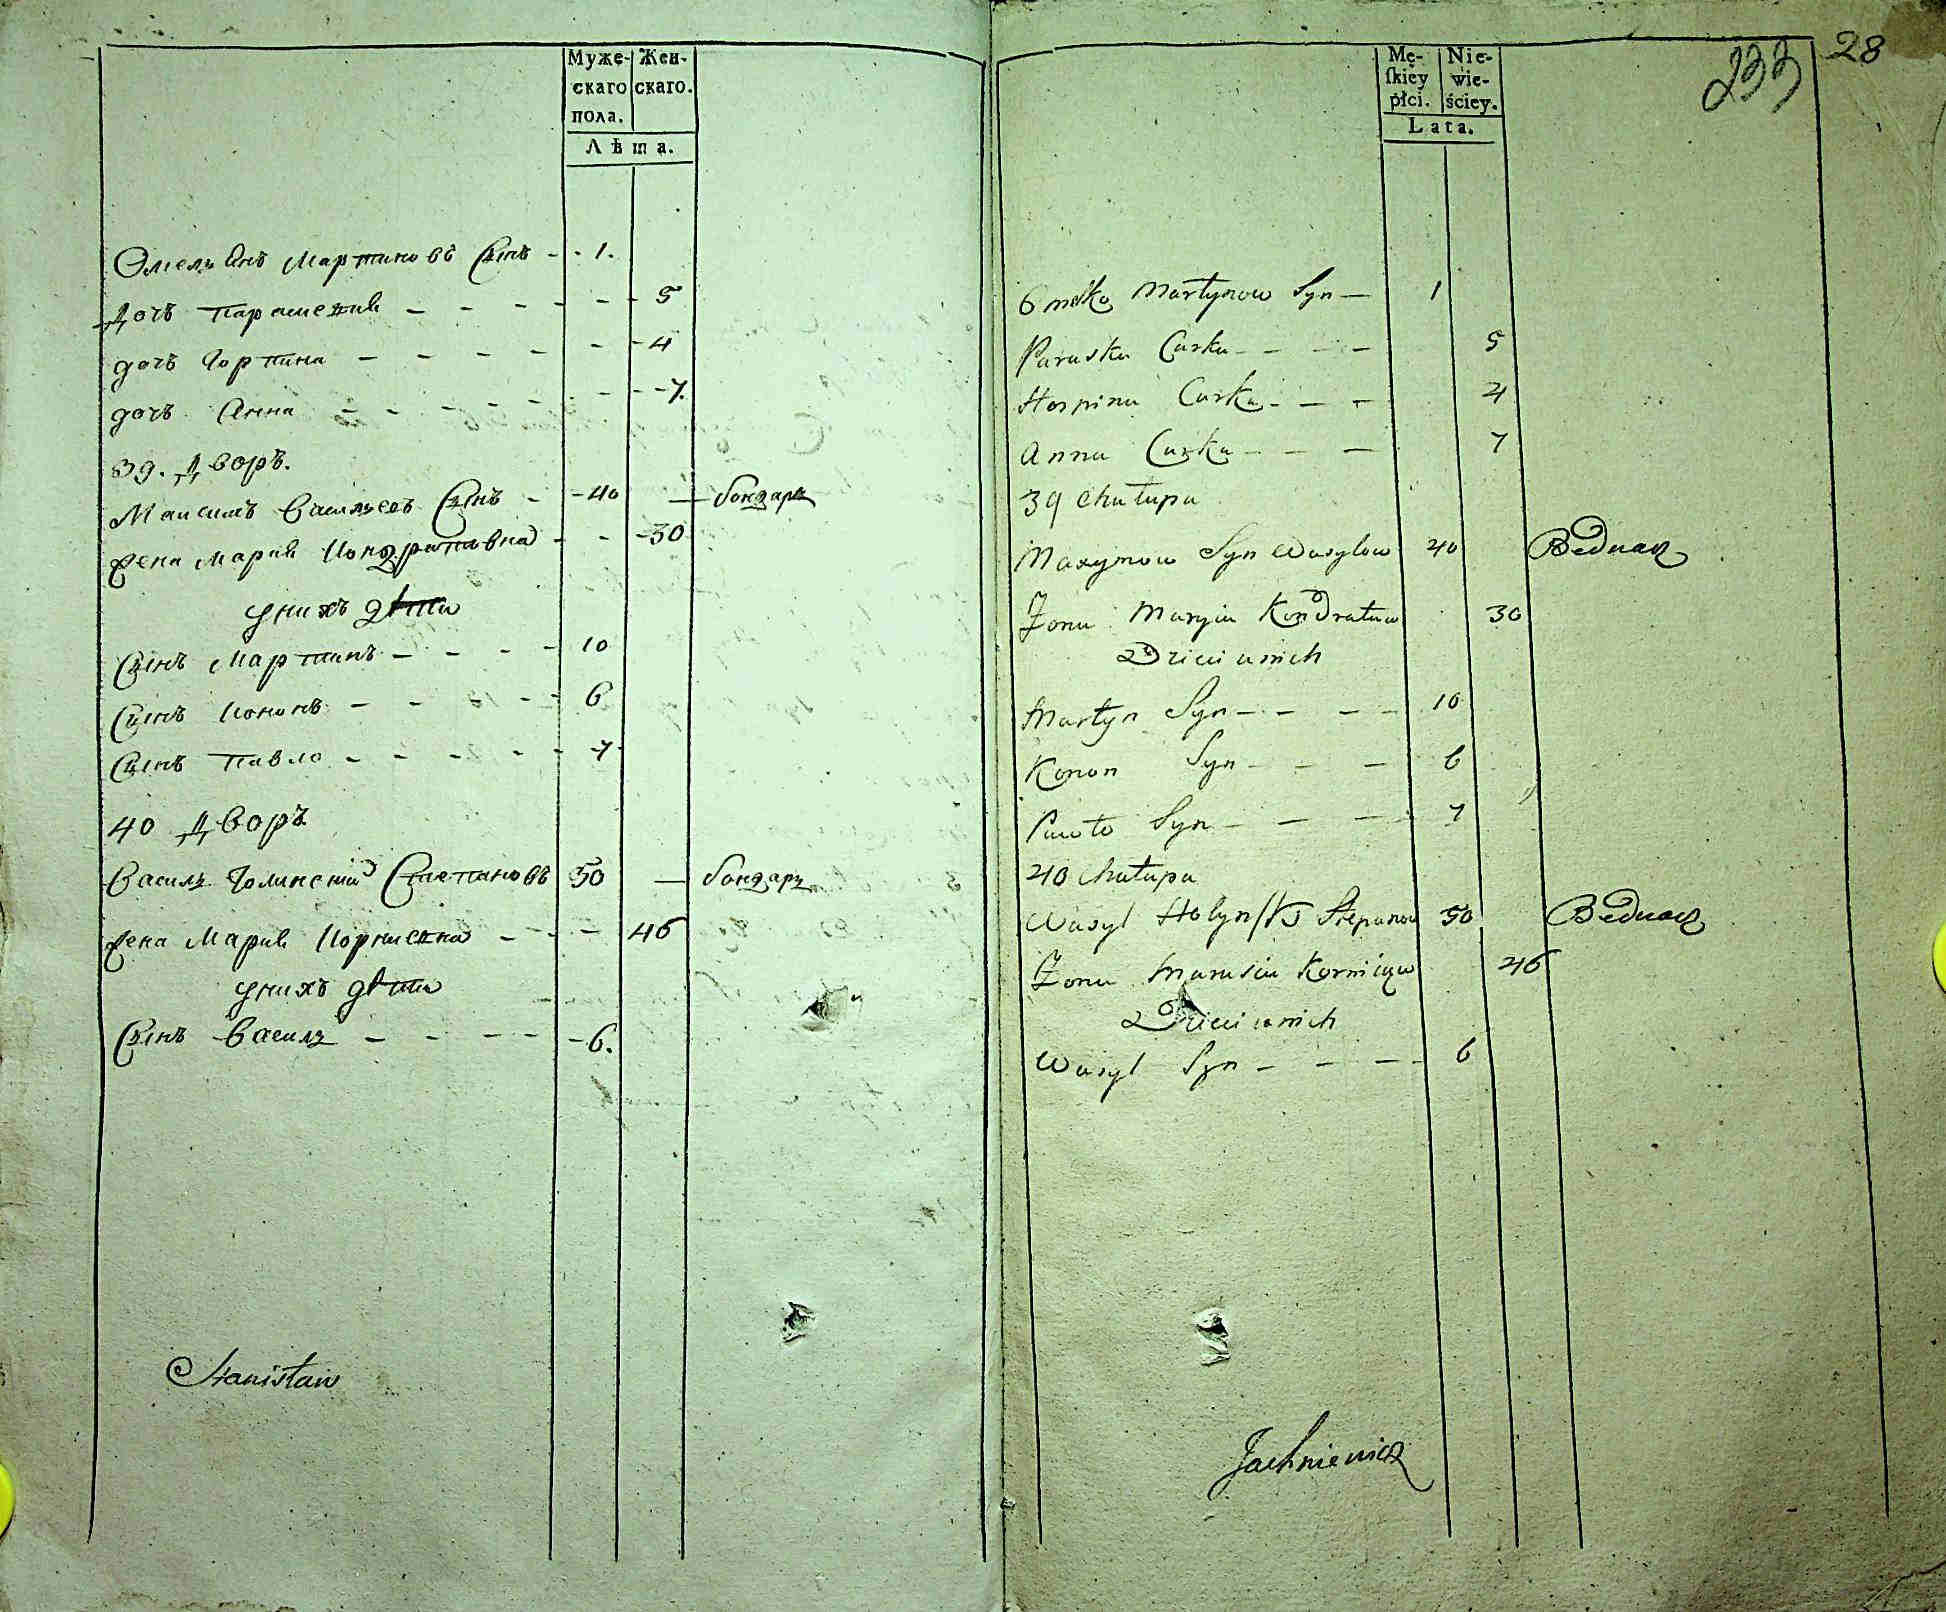 Муже-
скаго
пола.
Жен-
скаго.
Лѣта.
Омельянъ Мартиновъ Сынъ - - 1.
Дочъ Параскева - - - - - - 5
дочъ Горпина - - - - - - 4
дочъ Анна - - - - - - - 7.
39. Дворъ.
Максимъ Васильевъ Сынъ - - 40 — бондарь
жена Мария Кондратовна - - - 30
унихъ дѣти
Сынъ Мартинъ - - - - 10
Сынъ Кононъ - - - - 6
Сынъ Павло - - - - - 7
40 Дворъ
Василь Голинский Степановъ 50 — бондарь
жена Мария Корниевна - - - 46
унихъ дѣти
Сынъ Василь - - - - - 6.
Stanisław
28
233
Mę-
ſkiey
płci.
Nie-
wie-
ściey.
Lata.
Martynow Syn — 1
Paraska Curka - - - - 5
Horpina Curka - - - 4
Anna Curka - - - 7
39 Chałupa
Maxymow Syn Wasylow 40 Bednarz
Żona Maryia Kondratow 30
Dzieci u nich
Martyn Syn - - - - 10
Konon Syn - - - 6
Pawło Syn - - - 7
40 Chałupa
Wasyl Holynſki Stepanow 50 Bednarz
Żona Marusia 46
Dzieci u nich
Wasyl Syn - - - - 6
Jachniewicz